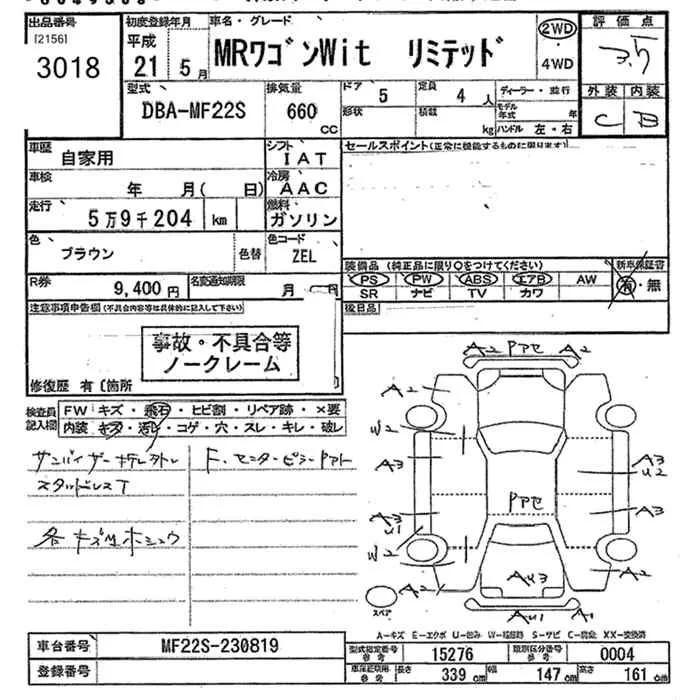 出品番号 初度登録年月 車名・グレード 評価点
[2156] 3018
平成 21年 5月
MRワゴンWit リミテッド
2WD・4WD
3.5
型式 DBA-MF22S
排気量 660cc
ドア 5 定員 4人
形状 積載 kg
ディーラー・並行
モデル年式 年
ハンドル 左・右
外装 内装
C B
車歴 自家用
シフト IAT
セールスポイント(正常に機能するものに限ります)
車検 年 月( 日)
冷房 AAC
走行 5万9千204 km
燃料 ガソリン
色 ブラウン 色替
色コード ZEL
装備品 (純正品に限り○をつけてください) 新車保証書
PS PW ABS エアB AW 有・無
SR ナビ TV カワ
R券 9,400円 名変通知期限 月
後日品
注意事項申告欄(不具合内容等は具体的に記入して下さい)
事故・不具合等
ノークレーム
修復歴 有〔箇所
検査員記入欄
FW キズ・飛石・ヒビ割・リペア跡・×要
内装 キズ・汚レ・コゲ・穴・スレ・キレ・破レ
サンバイザー
スタッドレスT
各キズ
A2 アセ A2
A2 A2
W2
A3 A3
U2
アセ
A3 A3
U1
W2
A2 A2
AU3
AU1 A1
スペア
A-キズ E-エクボ U-凹み W-補修跡 S-サビ C-腐蝕 XX-交換済
車台番号 MF22S-230819
型式指定番号 参考 15276 類別区分番号 参考 0004
登録番号
車庫証明用 参考 長さ 339 cm 幅 147 cm 高さ 161 cm